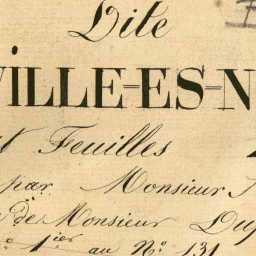 Dite
VILLE-ES-N
Feuilles
par Monsieur
de Monsieur Du
1ier au No. 131